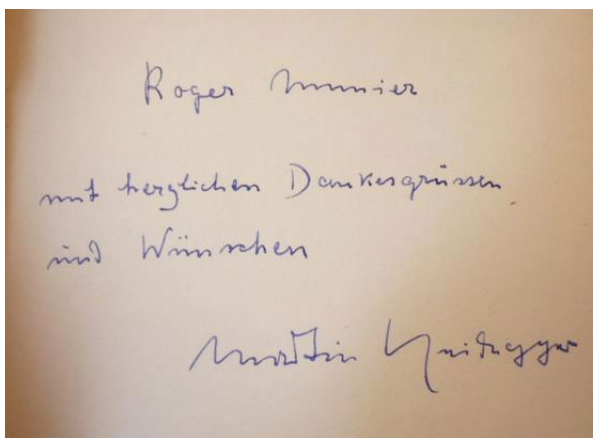 Roger Munier
mit herzlichen Dankesgrüssen
und Wünschen
Martin Heidegger